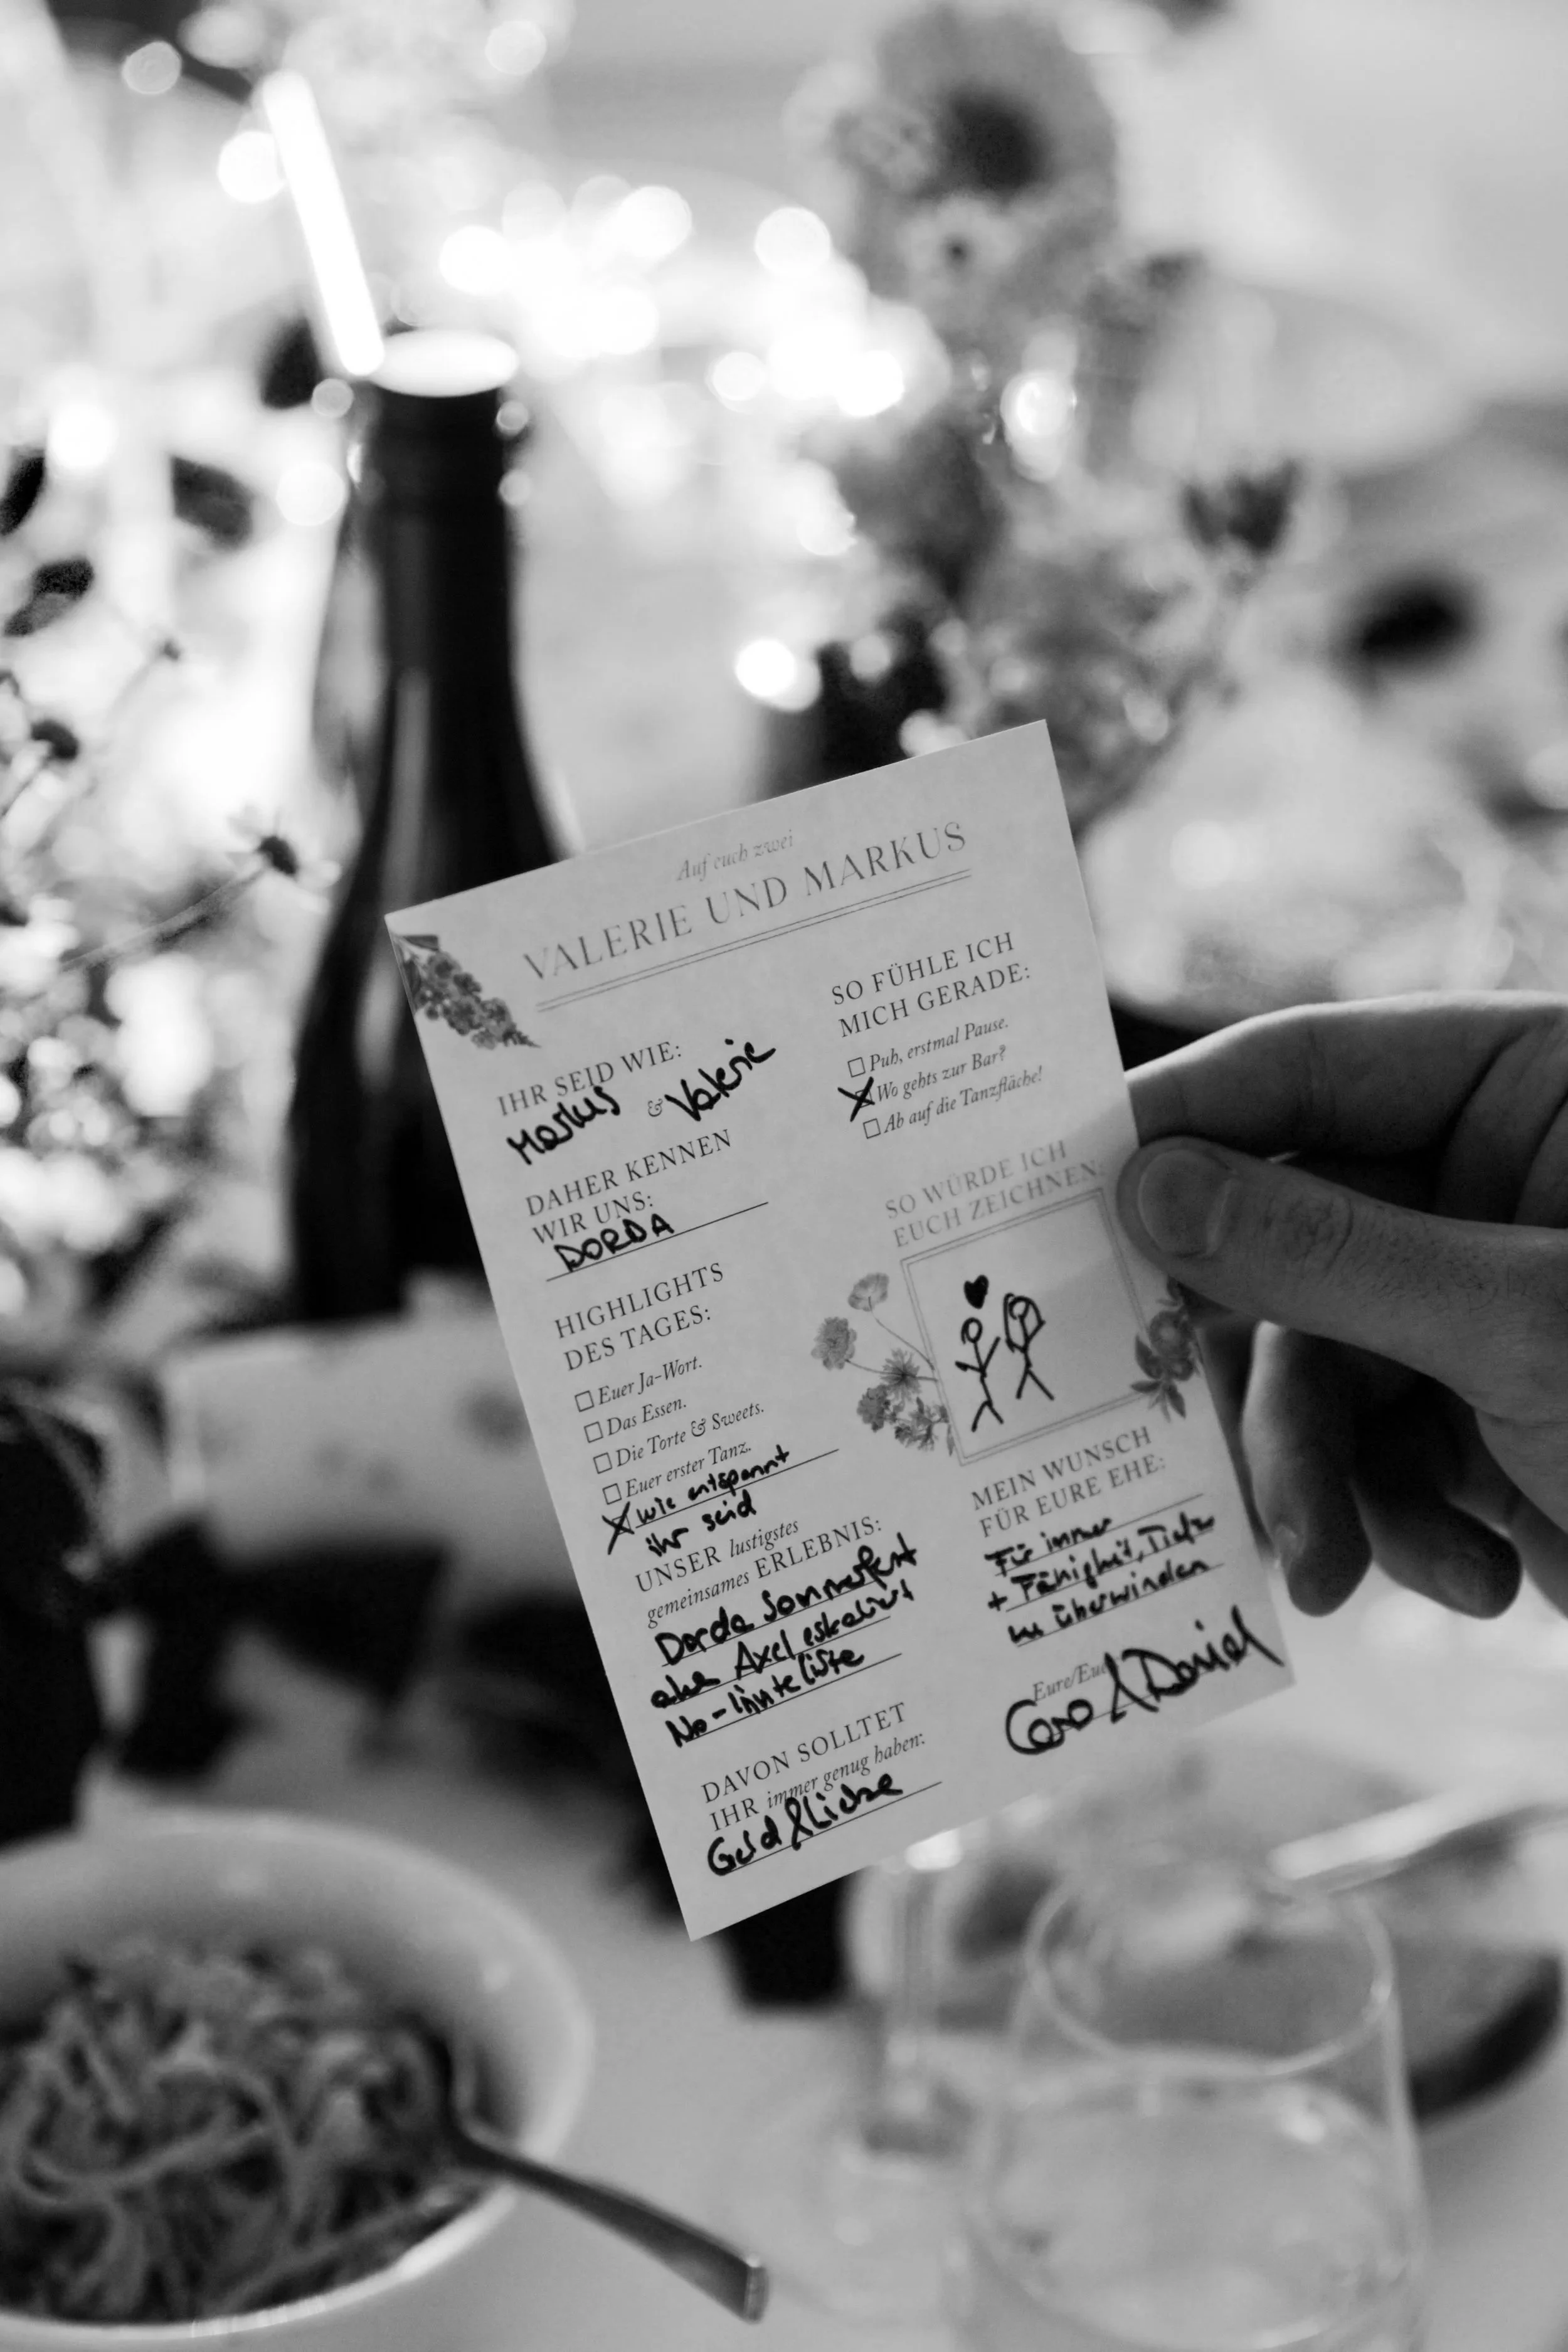 Auf euch zwei
VALERIE UND MARKUS
IHR SEID WIE:
Markus & Valerie
DAHER KENNEN
WIR UNS:
DORDA
HIGHLIGHTS
DES TAGES:
Euer Ja-Wort.
Das Essen.
Die Torte & Sweets.
Euer erster Tanz.
wie entspannt
ihr seid
UNSER lustigstes
gemeinsames ERLEBNIS:
Dorda Sommerfest
aka Axel eskaliert
No-
DAVON SOLLTET
IHR immer genug haben:
Geld & Liebe
SO FÜHLE ICH
MICH GERADE:
Puh, erstmal Pause.
Wo gehts zur Bar?
Ab auf die Tanzfläche!
SO WÜRDE ICH
EUCH ZEICHNEN:
MEIN WUNSCH
FÜR EURE EHE:
Für immer
+ Fähigkeit, Tiefen
zu überwinden
Eure/Eue
Caro & Daniel